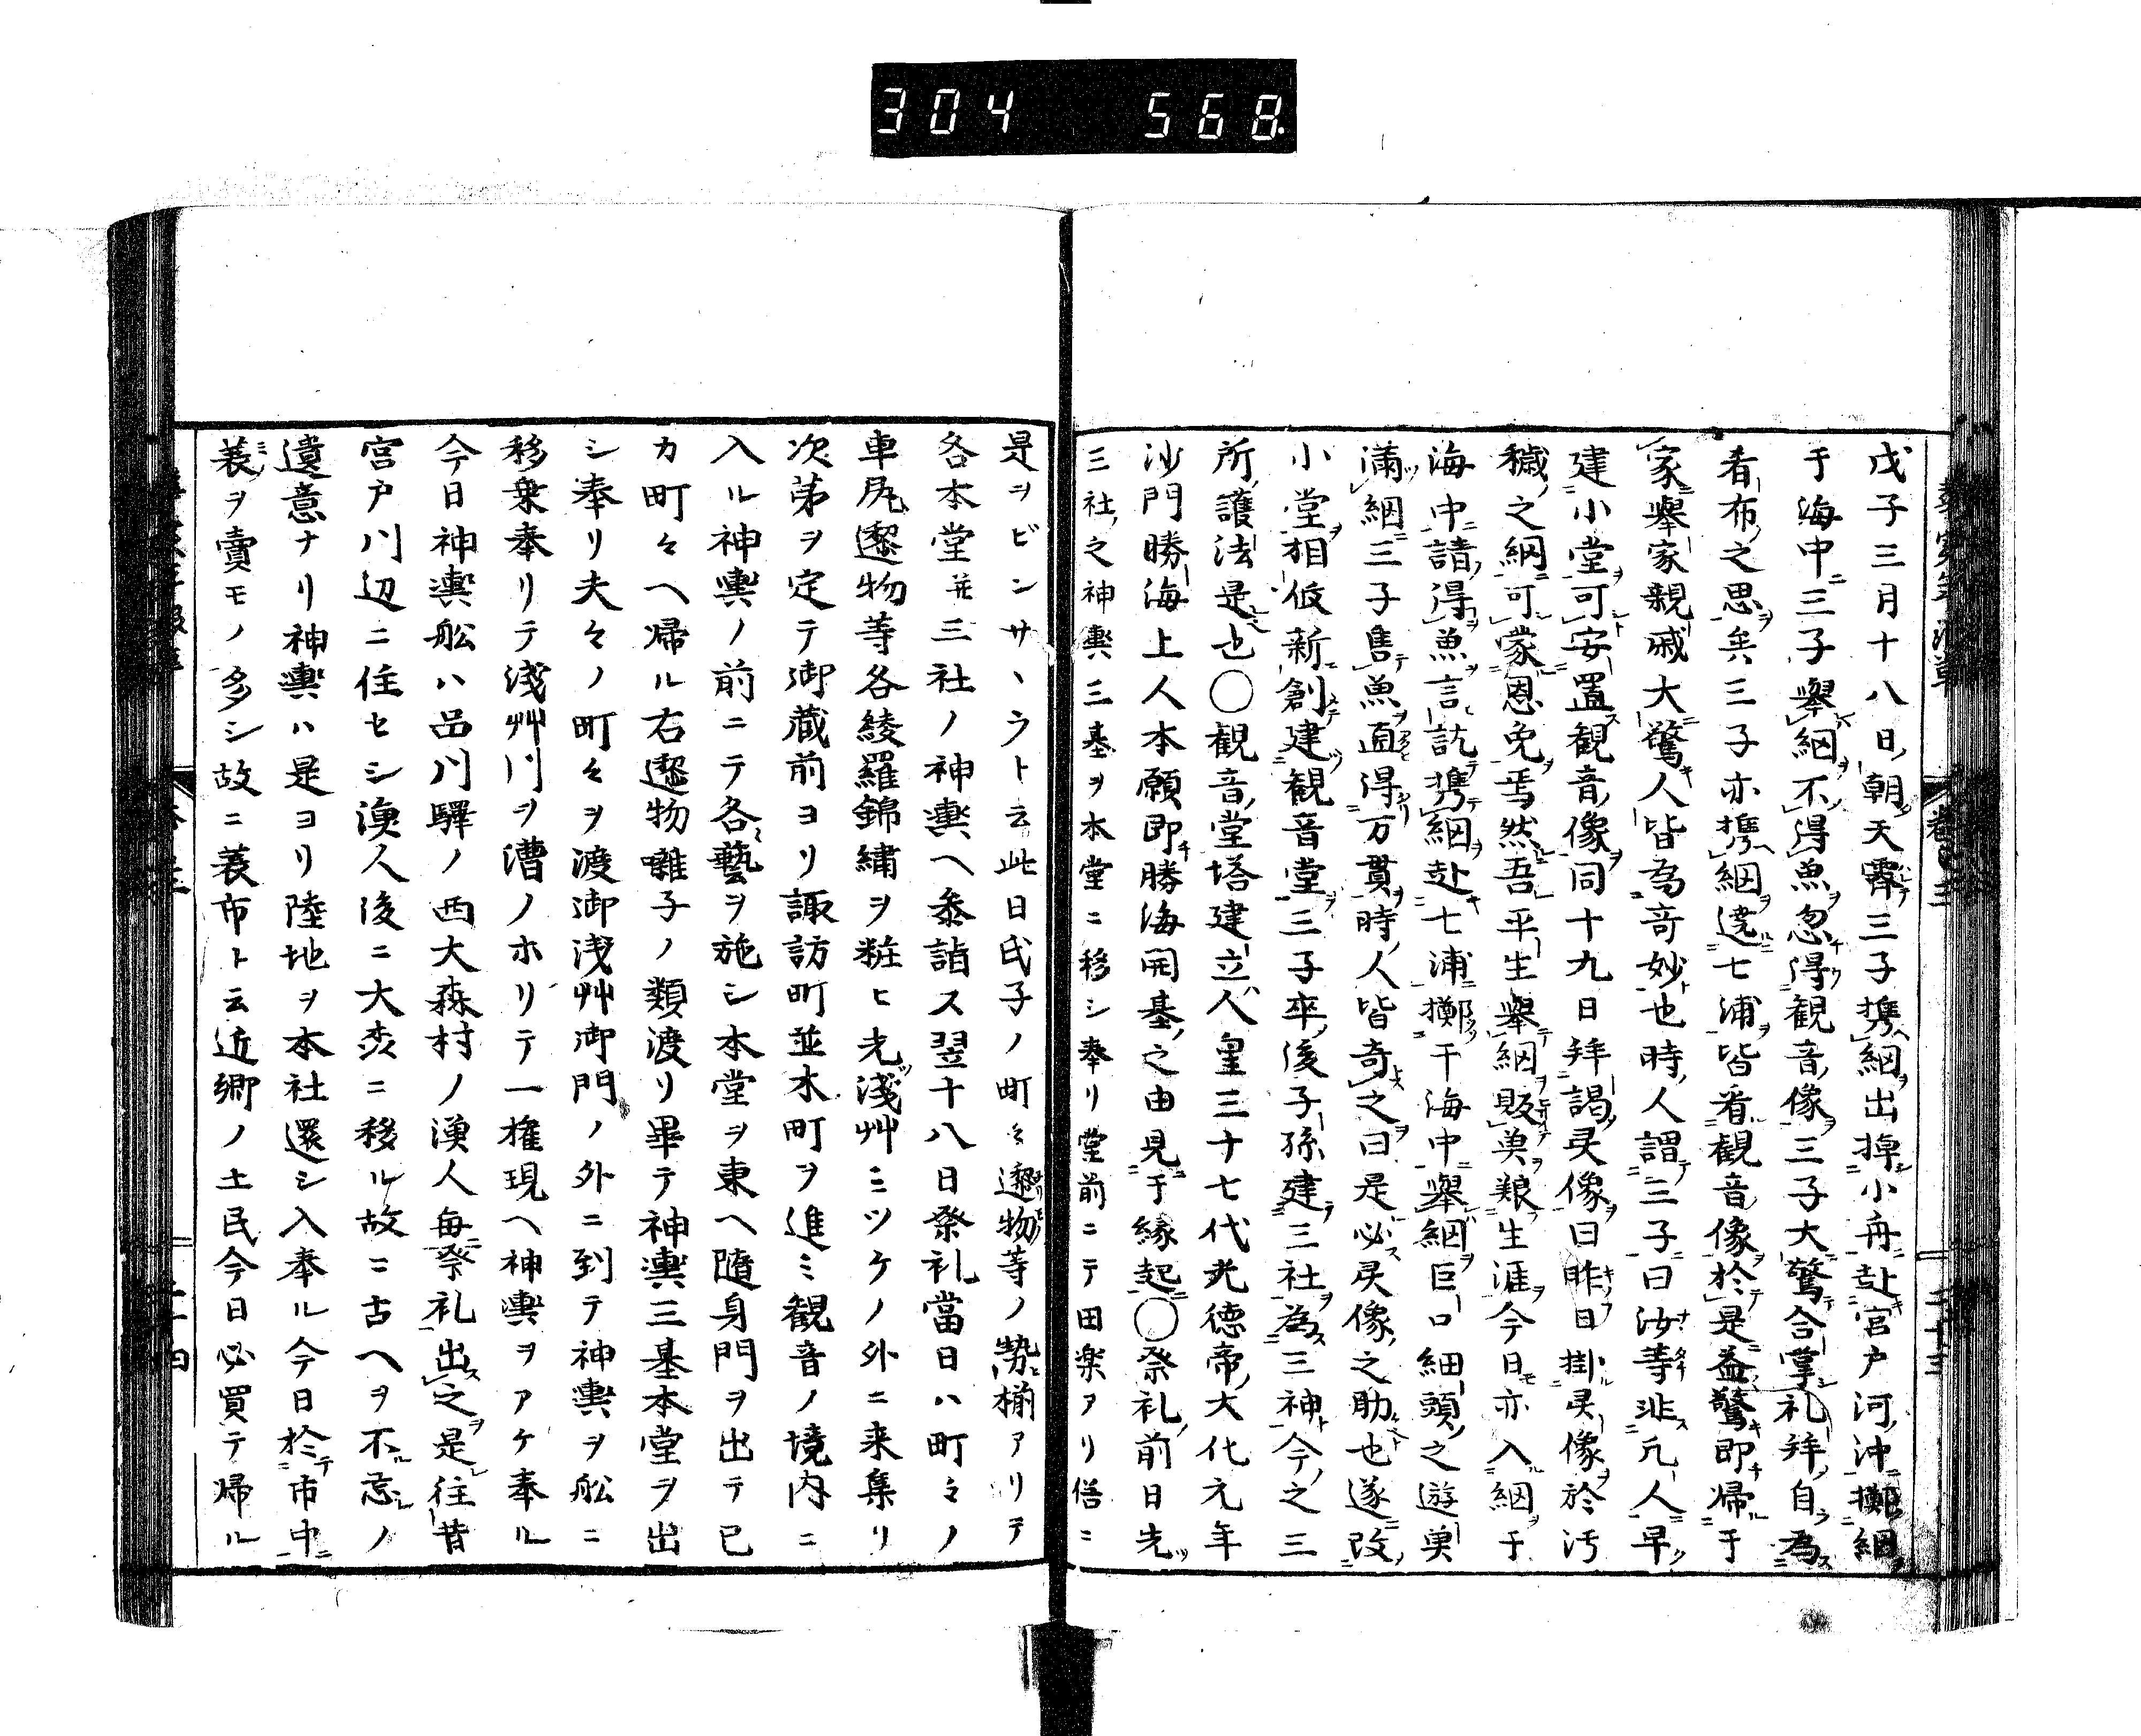 304 568
戊子三月十八日朝天霽三子携網出掉小舟赴宮户河沖擲網
于海中三子擧網不得魚忽得観音像三子大驚合掌礼拜自為
看布之思矣三子亦携網遶七浦皆看観音像於是益驚即帰于
家擧家親戚大驚人皆為竒妙也時人謂三子曰汝等非凡人早
建小堂可安置観音像同十九日拜謁灵像曰昨日掛灵像於汚
穢之網可蒙恩免焉然吾平生擧網販奠粮生涯今日亦入網于
海中請得魚言訖携網赴七浦擲干海中擧網巨口細頭之遊奠
滿網三子售魚直得万貫時人皆奇之曰是必灵像之助也遂改
小堂相低新創建観音堂三子卒後子孫建三社為三神今之三
所護法是也〇観音堂塔建立人皇三十七代光德帝大化元年
沙門勝海上人本願即勝海開基之由見于縁起〇祭礼前日先
三社之神輿三基ヲ本堂ニ移シ奉リ堂前ニテ田楽アリ俗ニ
是ヲビンサヽラト云此日氏子ノ町々邌物等ノ勢揃アリテ
各本堂并三社ノ神輿ヘ叅詣ス翌十八日祭礼當日ハ町々ノ
車尻邌物等各綾羅錦繡ヲ粧ヒ先淺艸ミツケノ外ニ来集リ
次第ヲ定テ御蔵前ヨリ諏訪町並木町ヲ進ミ観音ノ境内ニ
入ル神輿ノ前ニテ各藝ヲ施シ本堂ヲ東ヘ隨身門ヲ出テ已
カ町々ヘ帰ル右邌物囃子ノ類渡リ畢テ神輿三基本堂ヲ出
シ奉リ夫々ノ町々ヲ渡御浅艸御門ノ外ニ到テ神輿ヲ舩ニ
移乗奉リテ淺艸川ヲ漕ノホリテ一権現ヘ神輿ヲアケ奉ル
今日神輿舩ハ品川驛ノ西大森村ノ漁人毎祭礼出之是往昔
宮户川辺ニ住セシ漁人後ニ大森ニ移ル故ニ古ヘヲ不忘ノ
遺意ナリ神輿ハ是ヨリ陸地ヲ本社還シ入奉ル今日於市中
蓑ヲ賣モノ多シ故ニ蓑市ト云近郷ノ土民今日必買テ帰ル